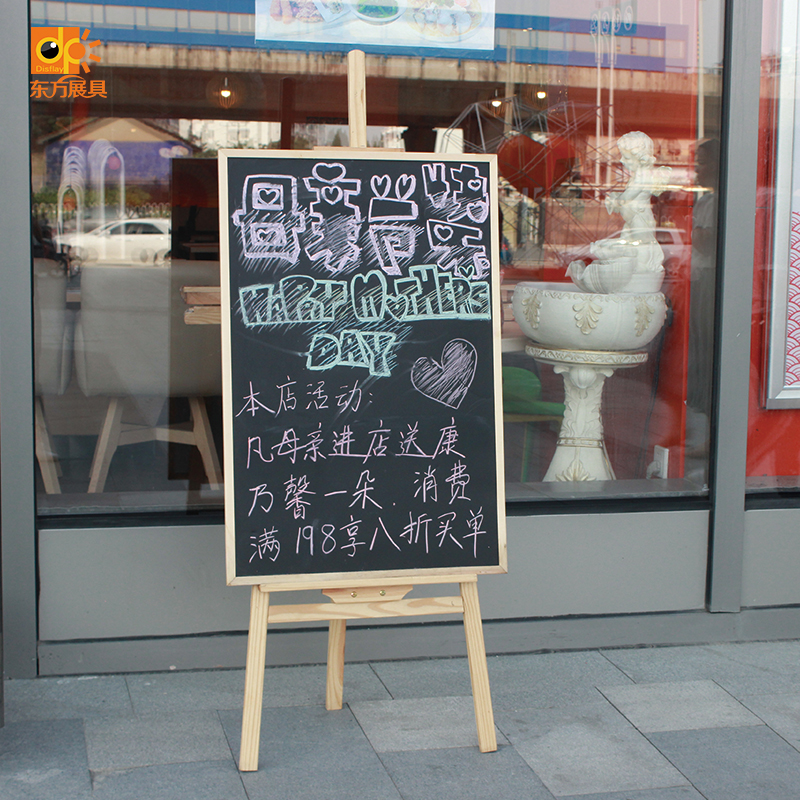 Disflay
东方展具
母亲节快乐
HAPPY MOTHER'S
DAY
本店活动:
凡母亲进店送康
乃馨一朵.消费
满198享八折买单